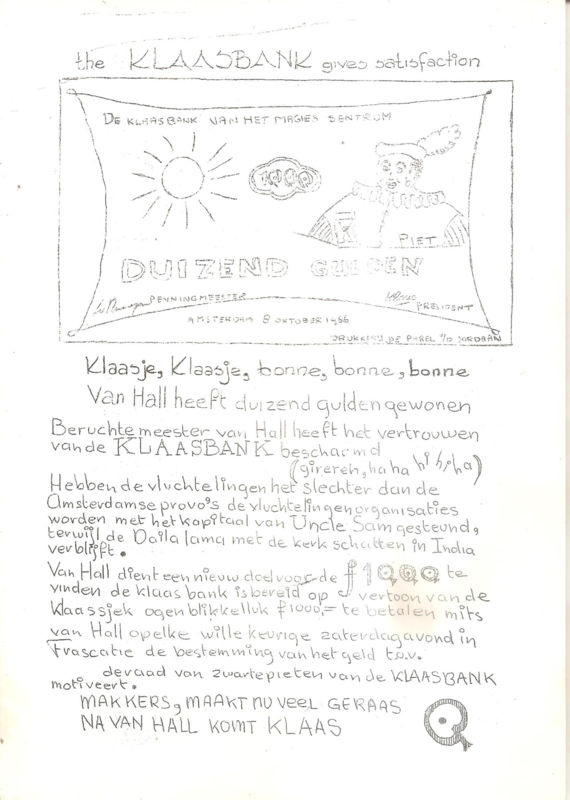 the KLAASBANK gives satisfaction
DE KLAASBANK VAN HET MAGIES SENTRUM
1000
K
PIET
DUIZEND GULDEN
PENNINGMEESTER
PRESIDENT
AMSTERDAM 8 OKTOBER 1966
DRUKKERIJ DE PAREL V/D JORDAAN
Klaasje, Klaasje, bonne, bonne, bonne
Van Hall heeft duizend gulden gewonen
Beruchte meester van Hall heeft het vertrouwen
van de KLAASBANK beschaamd
(giereh, ha ha hi hi, ha)
Hebben de vluchtelingen het slechter dan de
Amsterdamse provo's de vluchtelingenorganisaties
worden met het kapitaal van Uncle Sam gesteund,
terwijl de Dailalama met de kerk schatten in India
verblijft.
Van Hall dient een nieuw doel voor de f1000 te
vinden de klaas bank is bereid op vertoon van de
Klaassjek ogenblikkelluk f1000,= te betalen mits
van Hall op elke wille keurige zaterdagavond in
Frascatie de bestemming van het geld t.o.v.
de raad van zwartepieten van de KLAASBANK
motiveert.
MAKKERS, MAAKT NU VEEL GERAAS
NA VAN HALL KOMT KLAAS